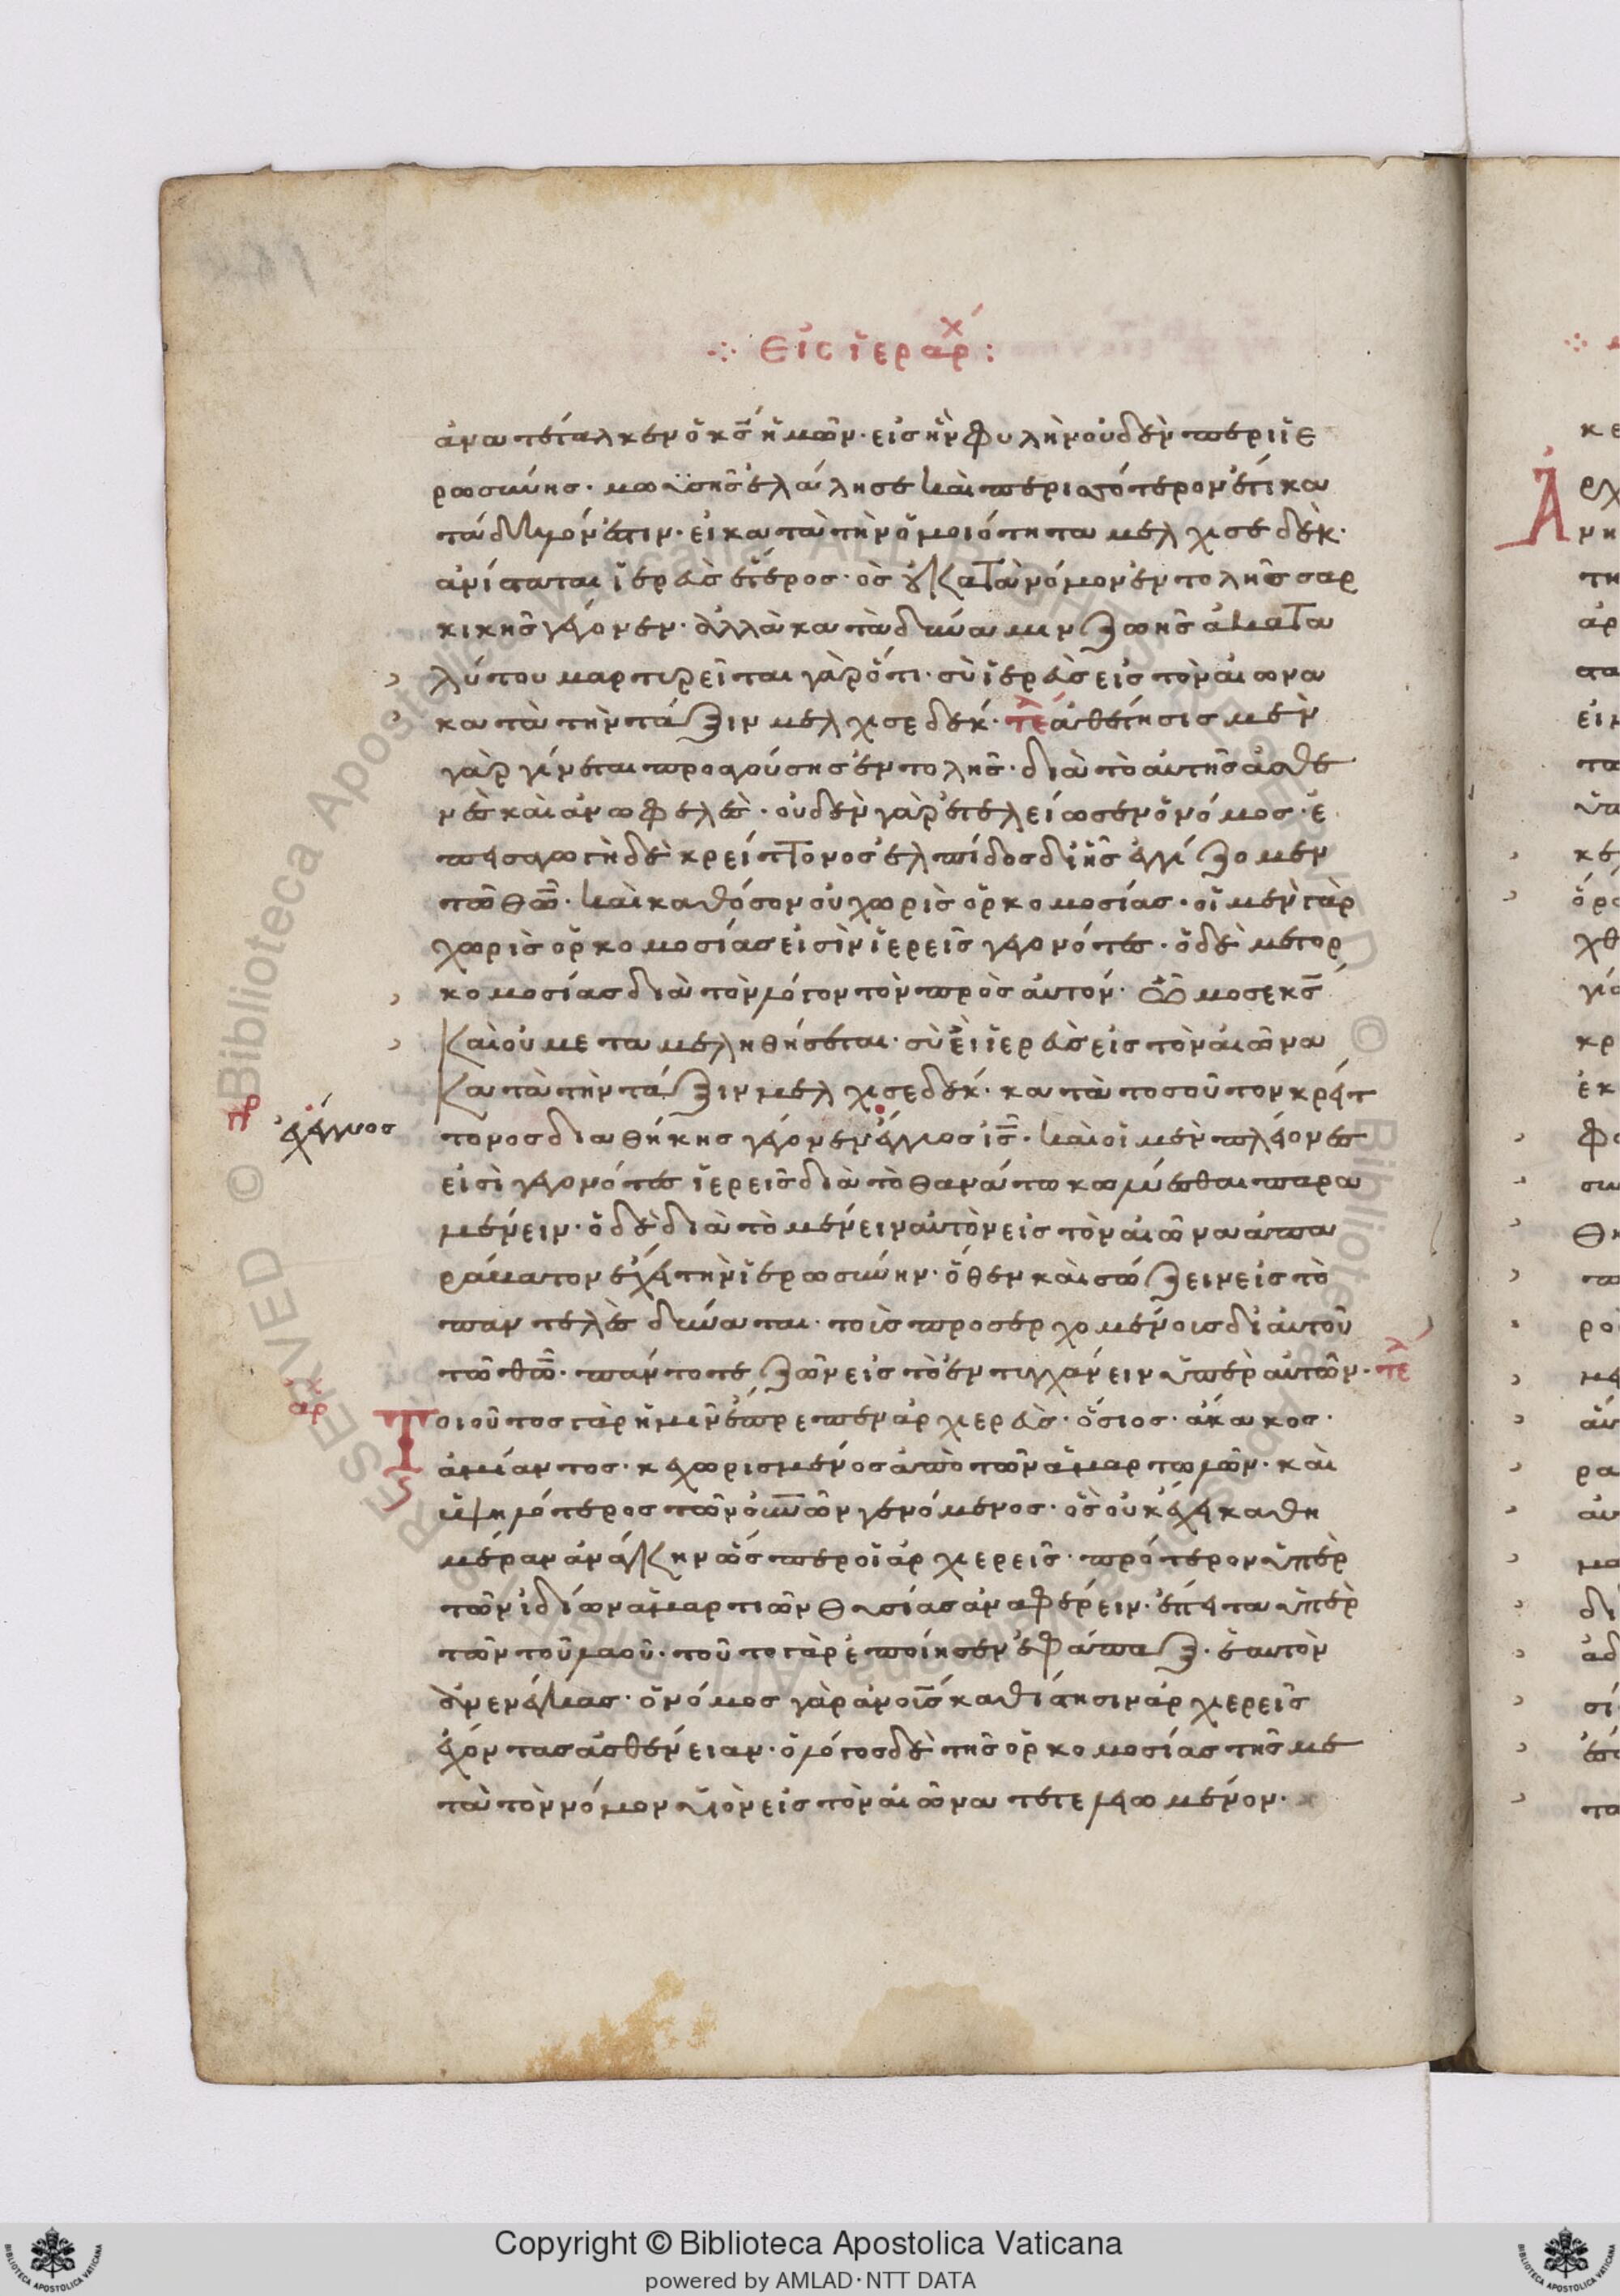 ⁘ Εἰς ἱεράρχ :
ἀνατέταλκεν ὁ κς ἡμῶν· εἰς ἣν φυλὴν οὐδὲν περὶ ἱε
ρωσύνης· μωϋσῆς ἐλάλησε καὶ περισσότερον ἔτι κα
τάδηλόν ἐστιν· εἰ κατὰ τὴν ὁμοιότητα μελχισεδὲκ·
ἀνίσταται ἱερεὺς ἕτερος· ὃς οὐ κατὰ νόμον ἐντολῆς σαρ
κικῆς γέγονεν· ἀλλὰ κατὰ δύναμιν ζωῆς ἀκατα
λύτου μαρτυρεῖται γὰρ ὅτι· σὺ ἱερεὺς εἰς τὸν αἰωνα
κατὰ τὴν τάξιν μελχισεδέκ· τελ ἀθέτησις μὲν
γὰρ γίνεται προαγούσης ἐντολῆς· διὰ τὸ αὐτῆς ἀσθε
νὲς καὶ ἀνωφελὲς· οὐδὲν γὰρ ἐτελείωσεν ὁ νόμος· ἐ
πεισαγωγὴ δὲ κρείττονος ἐλπίδος δι ἧς ἐγγίζομεν
τῶ θῶ· καὶ καθόσον οὐ χωρὶς ὁρκομοσίας· οἱ μὲν γὰρ
χωρὶς ὁρκομοσίας εἰσὶν ἱερεῖς γεγονότες· ὁ δὲ μετορ
κομοσίας διὰ τὸν λόγον τὸν πρὸς αὐτόν· ὤμοσε κς
καὶ οὐ μεταμεληθήσεται· σὺ εἶ ἱερεὺς εἰς τὸν αἰῶνα
κατὰ τὴν τάξιν μελχισεδέκ· κατὰ τοσοῦτον κρείτ
ἔγγυος
τονος διαθήκης γέγονεν ἔγγυος ις· καὶ οἱ μὲν πλείονες
εἰσὶ γεγονότες ἱερεῖς διὰ τὸ θανάτω κωλύεσθαι παρα
μένειν· ὁ δὲ διὰ τὸ μένειν αὐτὸν εἰς τὸν αἰῶνα ἀπα
ράβατον ἔχει τὴν ἱερωσύνην· ὅθεν καὶ σώζειν εἰς τὸ
παντελὲς δύναται· τοὺς προσερχομένους δι αὐτοῦ
τῶ θῶ· πάντοτε ζῶν εἰς τὸ ἐντυγχάνειν ὑπὲρ αὐτῶν· τελ
ἀρ
Τοιοῦτος γὰρ ἡμῖν ἔπρεπεν ἀρχιερεὺς· ὅσιος· ἄκακος·
ἀμίαντος· κεχωρισμένος ἀπὸ τῶν ἁμαρτωλῶν· καὶ
ὑψηλότερος τῶν οὐνῶν γενόμενος· ὃς οὐκ ἔχει καθη
μέραν ἀνάγκην ὥσπερ οἱ ἀρχιερεῖς· πρότερον ὑπὲρ
τῶν ἰδίων ἁμαρτιῶν θυσίας ἀναφέρειν· ἔπειτα ὑπὲρ
τῶν τοῦ λαοῦ· τοῦτο γὰρ ἐποίησεν ἐφάπαξ· ἑαυτὸν
ἀνενέγκας· ὁ νόμος γὰρ ἀνοὺς καθίστησιν ἀρχιερεῖς
ἔχοντας ἀσθένειαν· ὁ λόγος δὲ τῆς ὁρκομοσίας τῆς με
τὰ τὸν νόμον υἱὸν εἰς τὸν αἰῶνα τετελειωμένον·
Copyright © Biblioteca Apostolica Vaticana
powered by AMLAD·NTT DATA